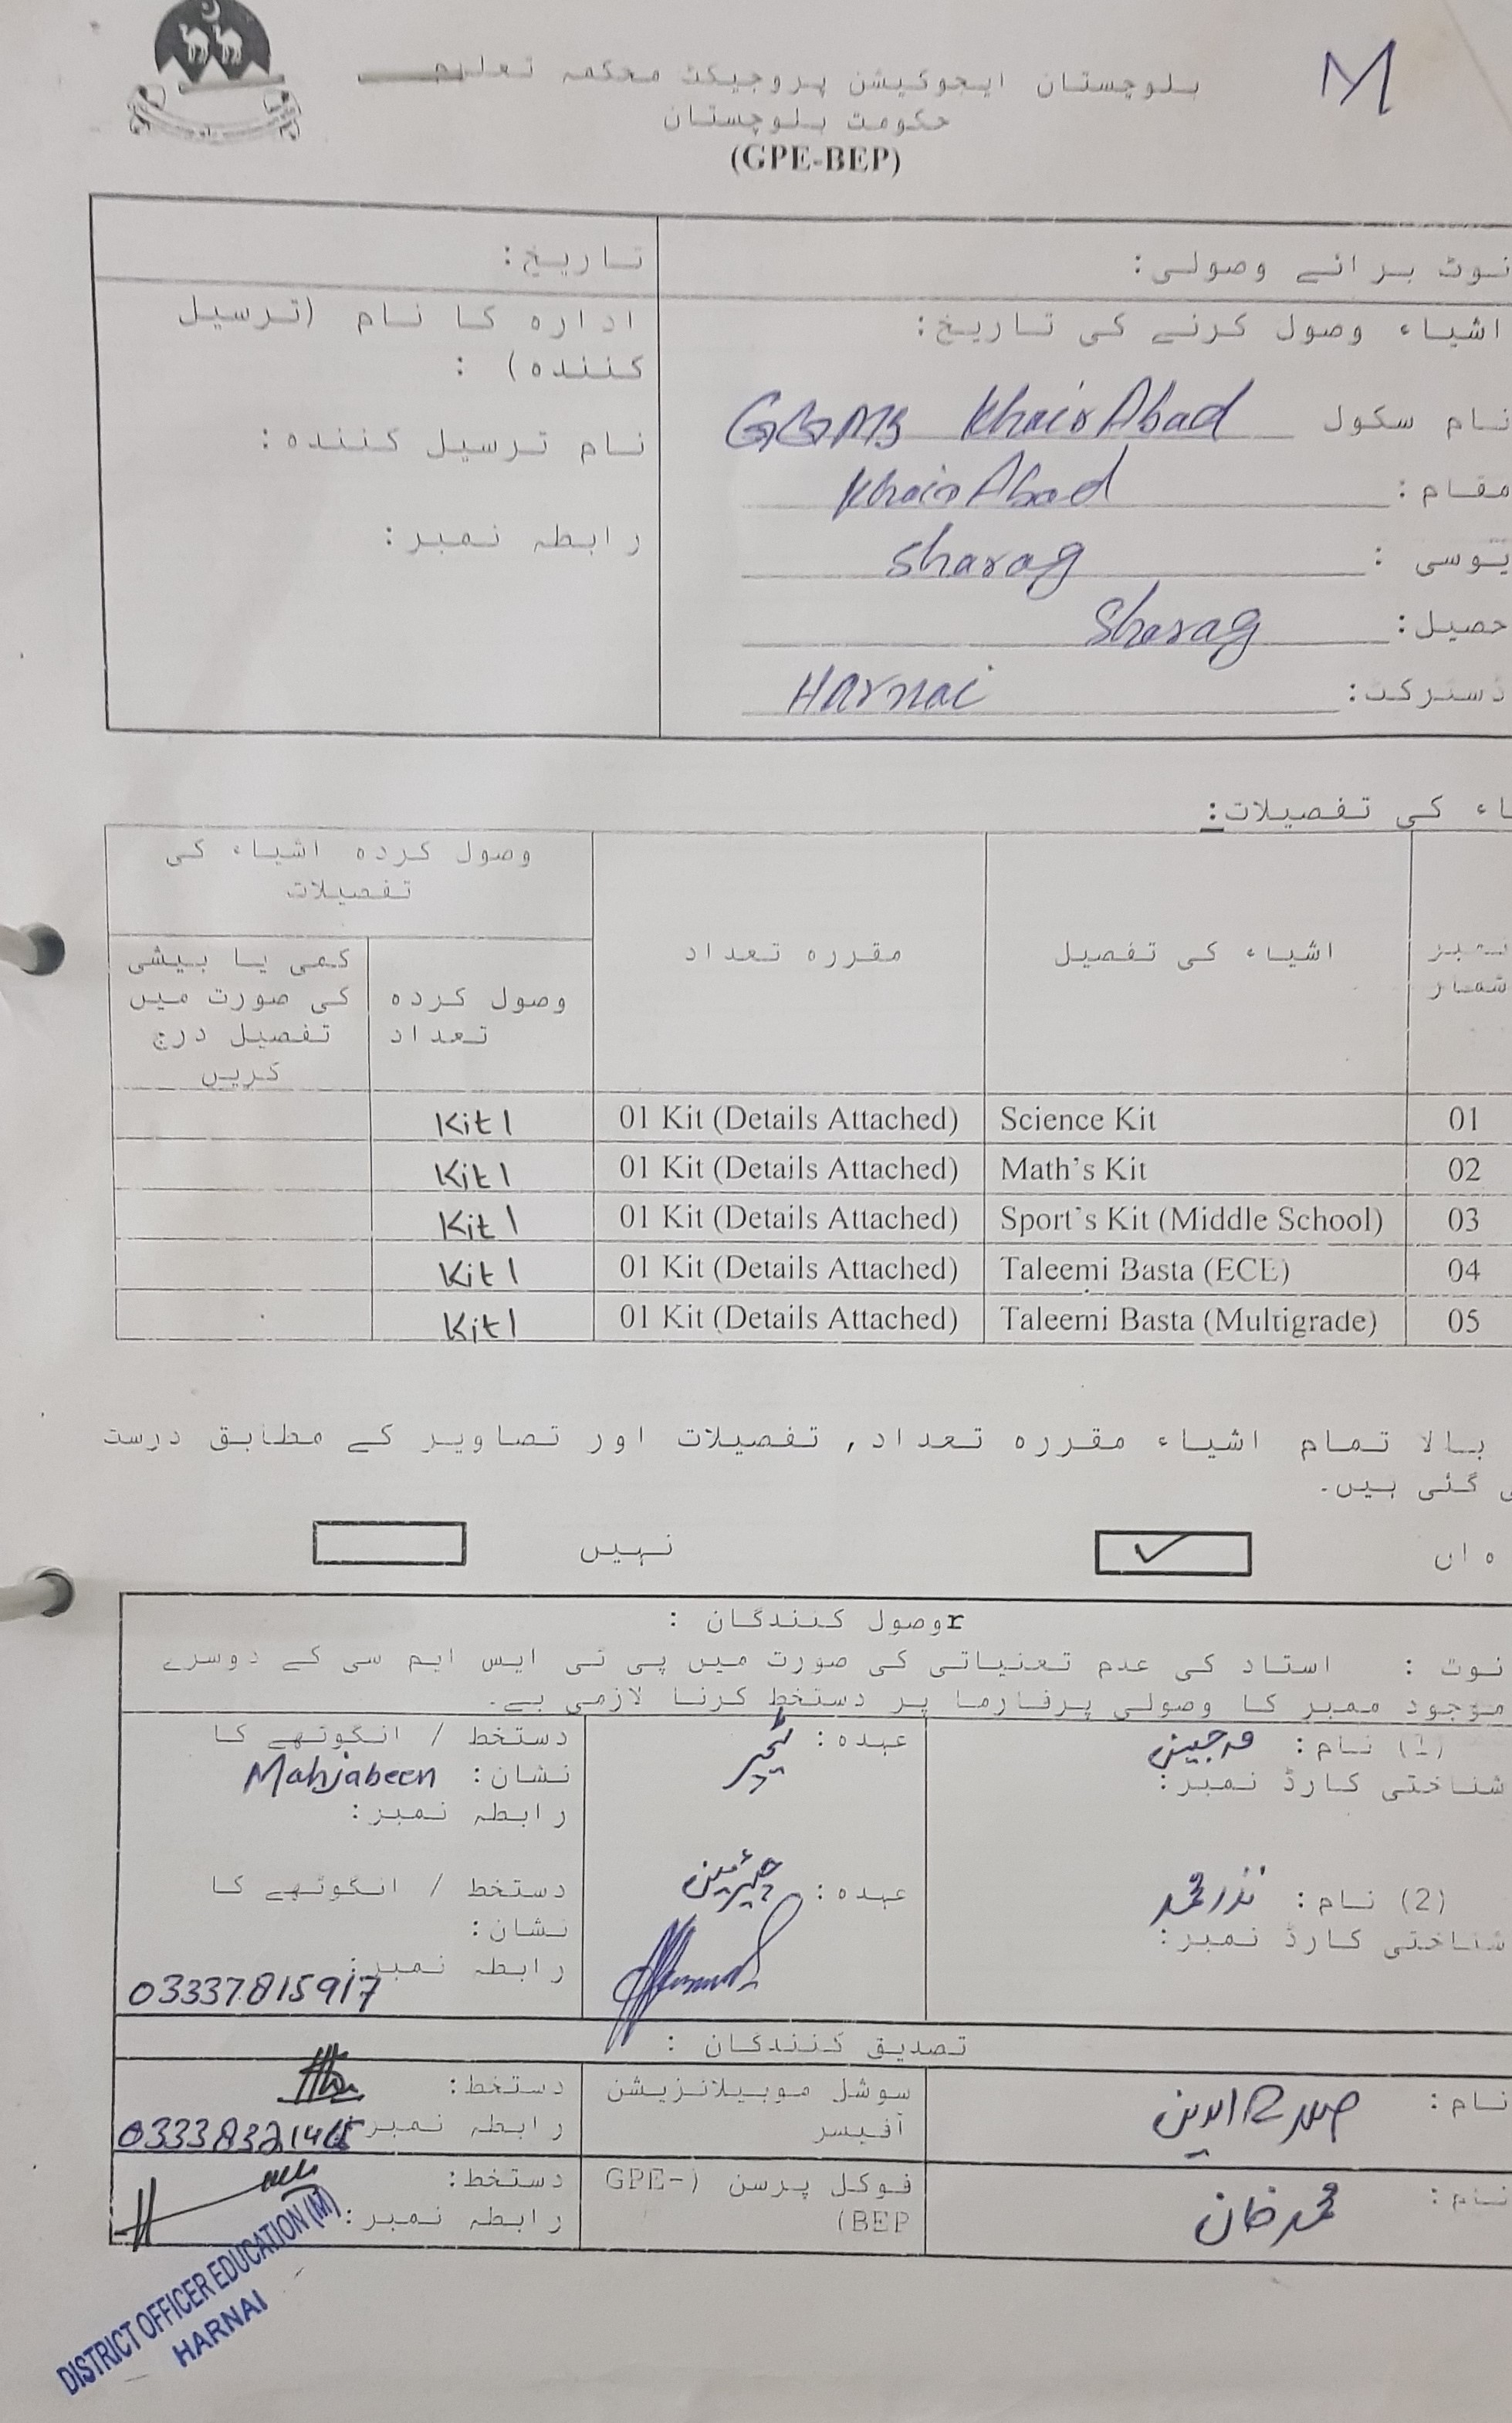 بلوچستان ایجوکیشن پروجیکٹ محکمہ تعلیم
M
حکومت بلوچستان
(GPE-BEP)
نوٹ برائے وصولی:
تاریخ:
اشیاء وصول کرنے کی تاریخ:
نام سکول GGMS KhairAbad
مقام: KhairAbad
یوسی : Sharag
حصیل: Sharag
ڈسٹرکٹ: Harnai
ادارہ کا نام (ترسیل
کنندہ) :
نام ترسیل کنندہ:
رابطہ نمبر:
اء کی تفصیلات:
نمبر شمار
اشیاء کی تفصیل
مقررہ تعداد
وصول کردہ اشیاء کی تفصیلات
وصول کردہ تعداد
کمی یا بیشی کی صورت میں تفصیل درج کریں
01 Science Kit 01 Kit (Details Attached) Kit 1
02 Math's Kit 01 Kit (Details Attached) Kit 1
03 Sport's Kit (Middle School) 01 Kit (Details Attached) Kit 1
04 Taleemi Basta (ECE) 01 Kit (Details Attached) Kit 1
05 Taleemi Basta (Multigrade) 01 Kit (Details Attached) Kit 1
بالا تمام اشیاء مقررہ تعداد, تفصیلات اور تصاویر کے مطابق درست
ی گئی ہیں۔
ہاں ✓ نہیں
rوصول کنندگان :
نوٹ : استاد کی عدم تعنیاتی کی صورت میں پی ٹی ایس ایم سی کے دوسرے
موجود ممبر کا وصولی پرفارما پر دستخط کرنا لازمی ہے۔
(1) نام: مہ جبین
شناختی کارڈ نمبر:
عہدہ: ٹیچر
دستخط / انگوٹھے کا
نشان: Mahjabeen
رابطہ نمبر:
(2) نام: نذر محمد
شناختی کارڈ نمبر:
عہدہ: چیئرمین
دستخط / انگوٹھے کا
نشان:
رابطہ نمبر:
03337815917
تصدیق کنندگان :
نام:
سوشل موبیلائزیشن
آفیسر
دستخط:
رابطہ نمبر:
نام: محمد خان
فوکل پرسن (GPE-
BEP)
دستخط:
رابطہ نمبر:
DISTRICT OFFICER EDUCATION (M)
HARNAI